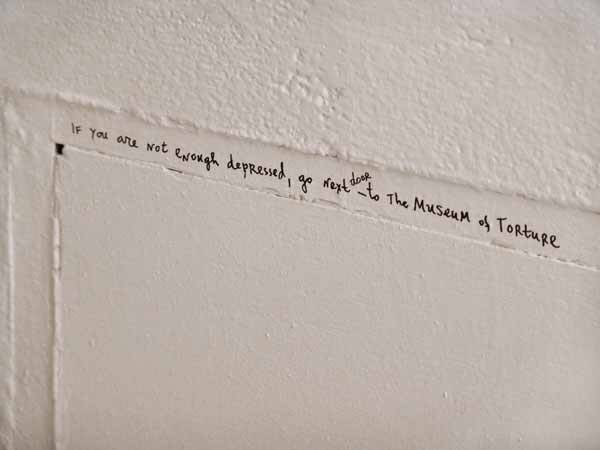 IF you are not enough depressed, go next door to The Museum of Torture